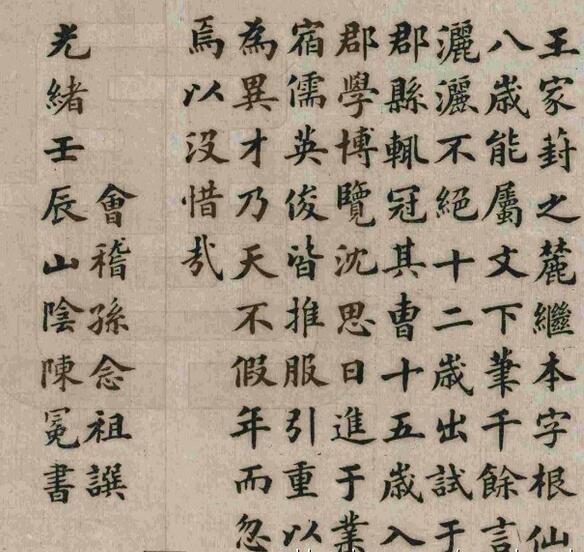 王家葑之麓繼本字根仙
八歲能屬文下筆千餘言
灑灑不絕十二歲出試于
郡縣輒冠其曹十五歲入
郡學博覽沈思日進于業
宿儒英俊皆推服引重以
為異才乃天不假年而忽
焉以沒惜哉
會稽孫念祖譔
光緒壬辰山陰陳冕書